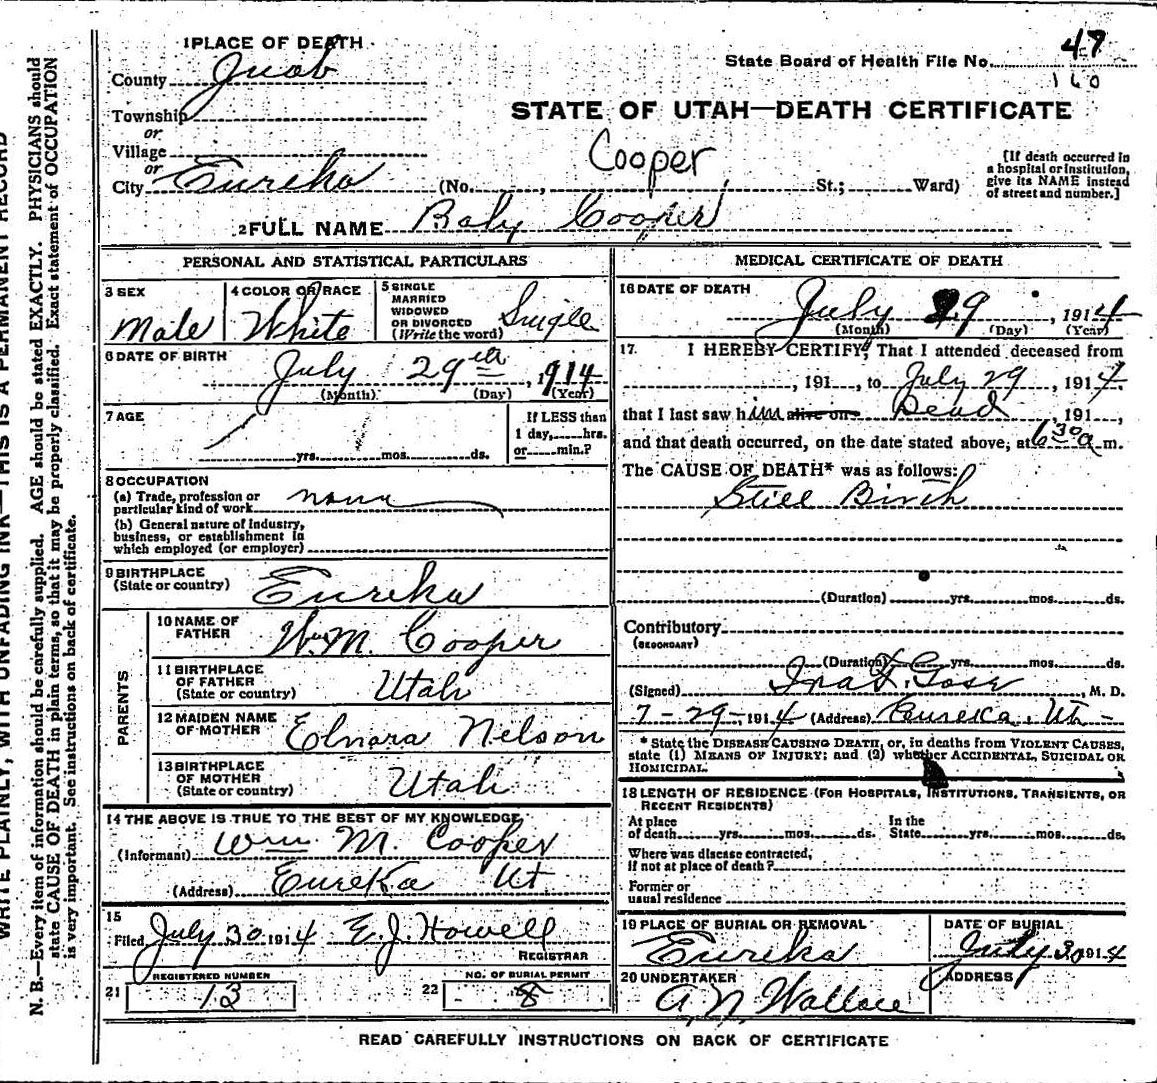 47
State Board of Health File No.
160
1 PLACE OF DEATH
County Juab
Township
or
Village
or
City Eureka (No. , St.; Ward)
STATE OF UTAH—DEATH CERTIFICATE
Cooper
[If death occurred in
a hospital or institution,
give its NAME instead
of street and number.]
2 FULL NAME Baby Cooper
PERSONAL AND STATISTICAL PARTICULARS
3 SEX
Male
4 COLOR OR RACE
White
5 SINGLE
MARRIED
WIDOWED
OR DIVORCED
(Write the word)
Single
6 DATE OF BIRTH
July 29th, 1914
(Month) (Day) (Year)
7 AGE
yrs. mos. ds.
If LESS than
1 day, hrs.
or min.?
8 OCCUPATION
(a) Trade, profession or
particular kind of work none
(b) General nature of industry,
business, or establishment in
which employed (or employer)
9 BIRTHPLACE
(State or country) Eureka
PARENTS
10 NAME OF
FATHER Wm M. Cooper
11 BIRTHPLACE
OF FATHER
(State or country) Utah
12 MAIDEN NAME
OF MOTHER Elnora Nelson
13 BIRTHPLACE
OF MOTHER
(State or country) Utah
14 THE ABOVE IS TRUE TO THE BEST OF MY KNOWLEDGE
(Informant) Wm M. Cooper
(Address) Eureka Ut
15
Filed July 30 1914 E. J. Howell
REGISTRAR
REGISTERED NUMBER
21 13
NO. OF BURIAL PERMIT
22 8
MEDICAL CERTIFICATE OF DEATH
16 DATE OF DEATH
July 29, 1914
(Month) (Day) (Year)
17. I HEREBY CERTIFY, That I attended deceased from
, 191 , to July 29, 1914.
that I last saw him alive on Dead , 191 ,
and that death occurred, on the date stated above, at 630 a m.
The CAUSE OF DEATH* was as follows:
Still Birth
(Duration) yrs. mos. ds.
Contributory
(SECONDARY)
(Duration) yrs. mos. ds.
(Signed) , M. D.
7-29-, 1914 (Address) Eureka, Ut-
* State the DISEASE CAUSING DEATH, or, in deaths from VIOLENT CAUSES,
state (1) MEANS OF INJURY; and (2) whether ACCIDENTAL, SUICIDAL OR
HOMICIDAL.
18 LENGTH OF RESIDENCE (FOR HOSPITALS, INSTITUTIONS, TRANSIENTS, OR
RECENT RESIDENTS)
At place
of death yrs. mos. ds.
In the
State yrs. mos. ds.
Where was disease contracted,
if not at place of death?
Former or
usual residence
19 PLACE OF BURIAL OR REMOVAL
Eureka
DATE OF BURIAL
July 30 1914
20 UNDERTAKER
A. N. Wallace
ADDRESS
READ CAREFULLY INSTRUCTIONS ON BACK OF CERTIFICATE
WRITE PLAINLY, WITH UNFADING INK—THIS IS A PERMANENT RECORD
N. B.—Every item of information should be carefully supplied. AGE should be stated EXACTLY. PHYSICIANS should
state CAUSE OF DEATH in plain terms, so that it may be properly classified. Exact statement of OCCUPATION
is very important. See instructions on back of certificate.